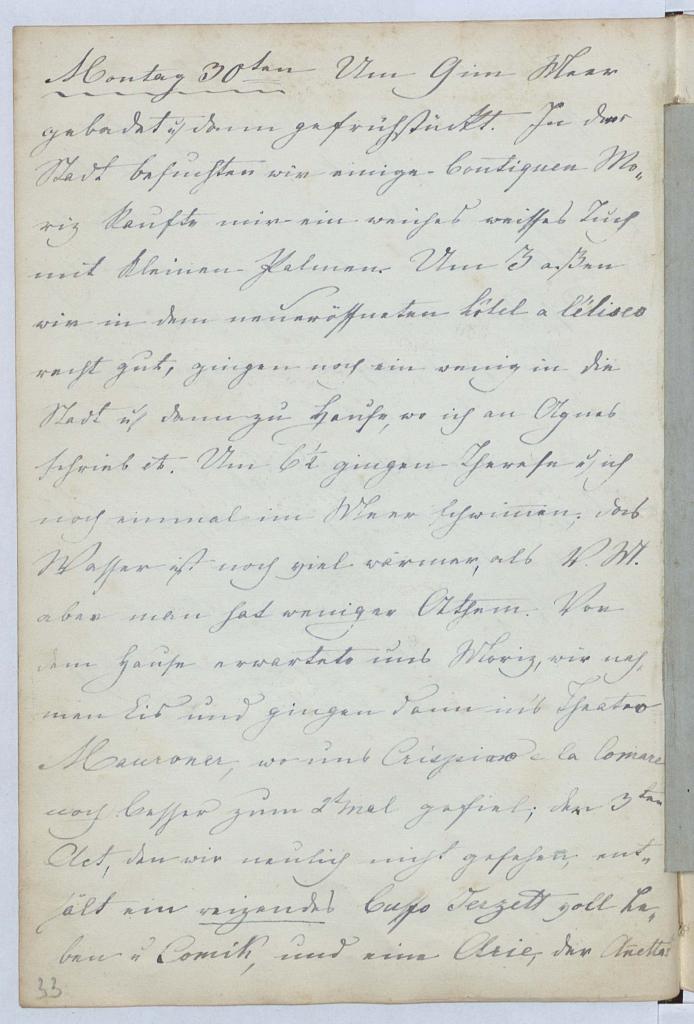 Montag 30ten Um 9 im Meer
gebadet u dann gefrühstückt. In der
Stadt besuchten wir einige Boutiquen Mo„
riz kaufte mir ein weiches weisses Tuch
mit kleinen Palmen. Um 3 aßen
wir in dem neueröffneten Hôtel a l'élisée
recht gut, gingen noch ein wenig in die
Stadt u dann zu Hause, wo ich an Agnes
schrieb etc. Um 6½ gingen Therese u ich
noch einmal im Meer schwimmen; das
Wasser ist noch viel wärmer, als V. M.
aber man hat weniger Athem. Vor
dem Hause erwartete uns Moriz, wir nah„
men Eis und gingen dann in's Theater
Mauroner, wo uns Crispino e la Comare
noch besser zum 2t Mal gefiel; der 3ten
Act, den wir neulich nicht gesehen, ent„
hält ein reizendes Buffo Terzett voll Le„
ben u Comik, und eine Arie, der Anetta
33